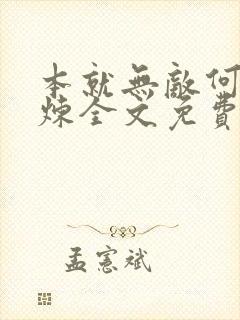 本就無敵何
煉全文免費
孟憲斌